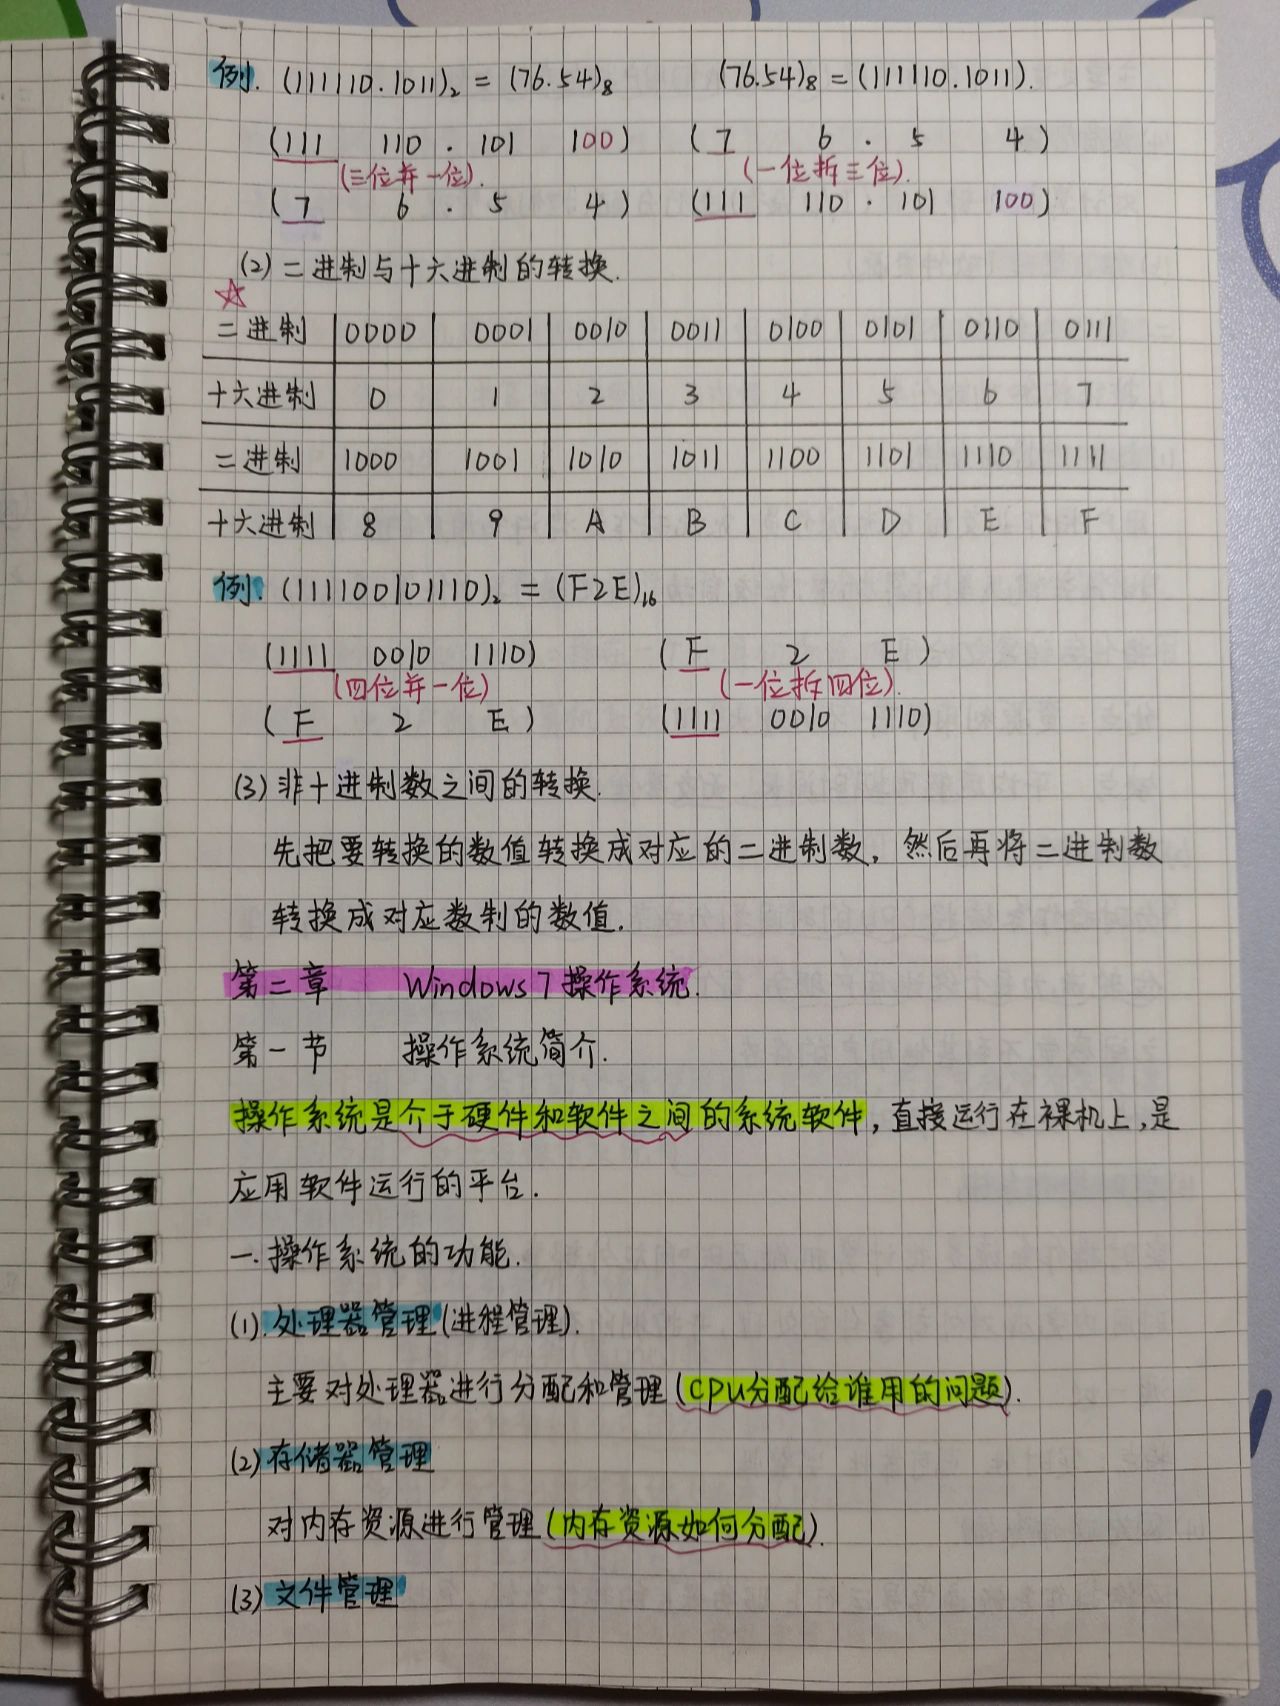 例. (111110.1011)₂ = (76.54)₈ (76.54)₈ = (111110.1011).
(111 110 . 101 100) (7 6 . 5 4)
(三位并一位). (一位拆三位).
(7 6 . 5 4) (111 110 . 101 100)
(2) 二进制与十六进制的转换.
☆
二进制 0000 0001 0010 0011 0100 0101 0110 0111
十六进制 0 1 2 3 4 5 6 7
二进制 1000 1001 1010 1011 1100 1101 1110 1111
十六进制 8 9 A B C D E F
例. (111100101110)₂ = (F2E)₁₆
(1111 0010 1110) (F 2 E)
(四位并一位) (一位拆四位).
(F 2 E) (1111 0010 1110)
(3) 非十进制数之间的转换.
先把要转换的数值转换成对应的二进制数, 然后再将二进制数
转换成对应数制的数值.
第二章 Windows 7 操作系统.
第一节 操作系统简介.
操作系统是介于硬件和软件之间的系统软件, 直接运行在裸机上, 是
应用软件运行的平台.
一. 操作系统的功能.
(1). 处理器管理 (进程管理).
主要对处理器进行分配和管理 (CPU分配给谁用的问题).
(2) 存储器管理
对内存资源进行管理 (内存资源如何分配).
(3) 文件管理